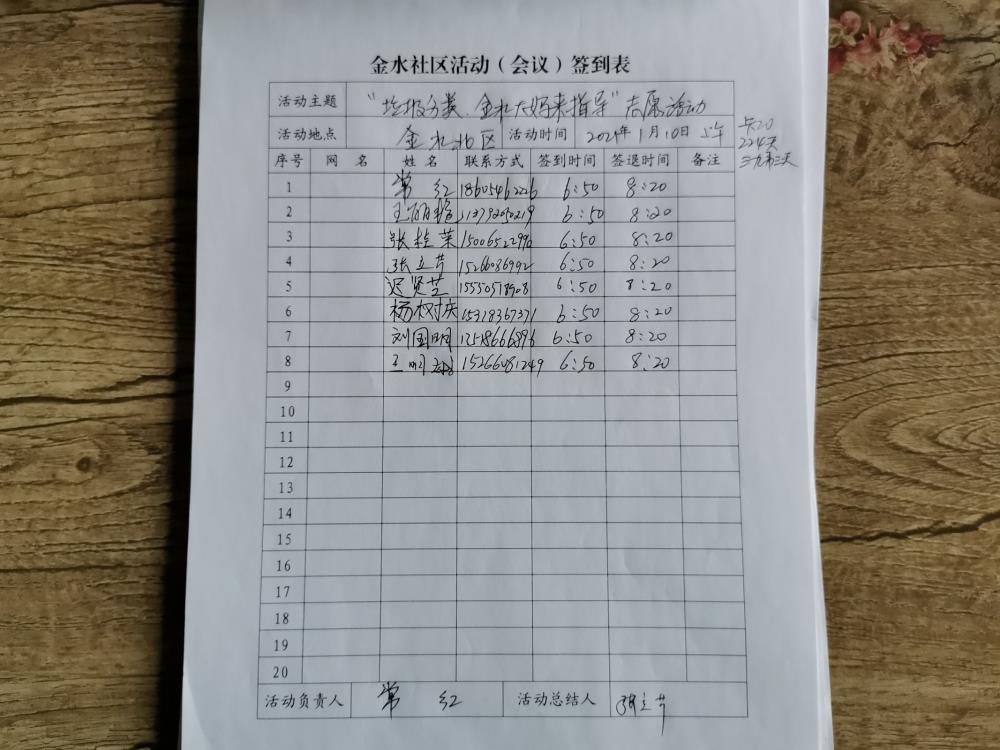 金水社区活动（会议）签到表
活动主题 “垃圾分类、金水大好来指导”志愿活动
活动地点 金水社区 活动时间 2021年1月10日 上午
卡20
三九第三天
序号 网名 姓名 联系方式 签到时间 签退时间 备注
1 常红 18605462226 6:50 8:20
2 王丽 6:50 8:20
3 张桂荣 15006522996 6:50 8:20
4 张立芹 15266086992 6:50 8:20
5 迟贤芝 15550518908 6:50 8:20
6 杨树庆 15318367371 6:50 8:20
7 刘国明 6:50 8:20
8 王明 15266081249 6:50 8:20
9
10
11
12
13
14
15
16
17
18
19
20
活动负责人 常红 活动总结人 张立芹